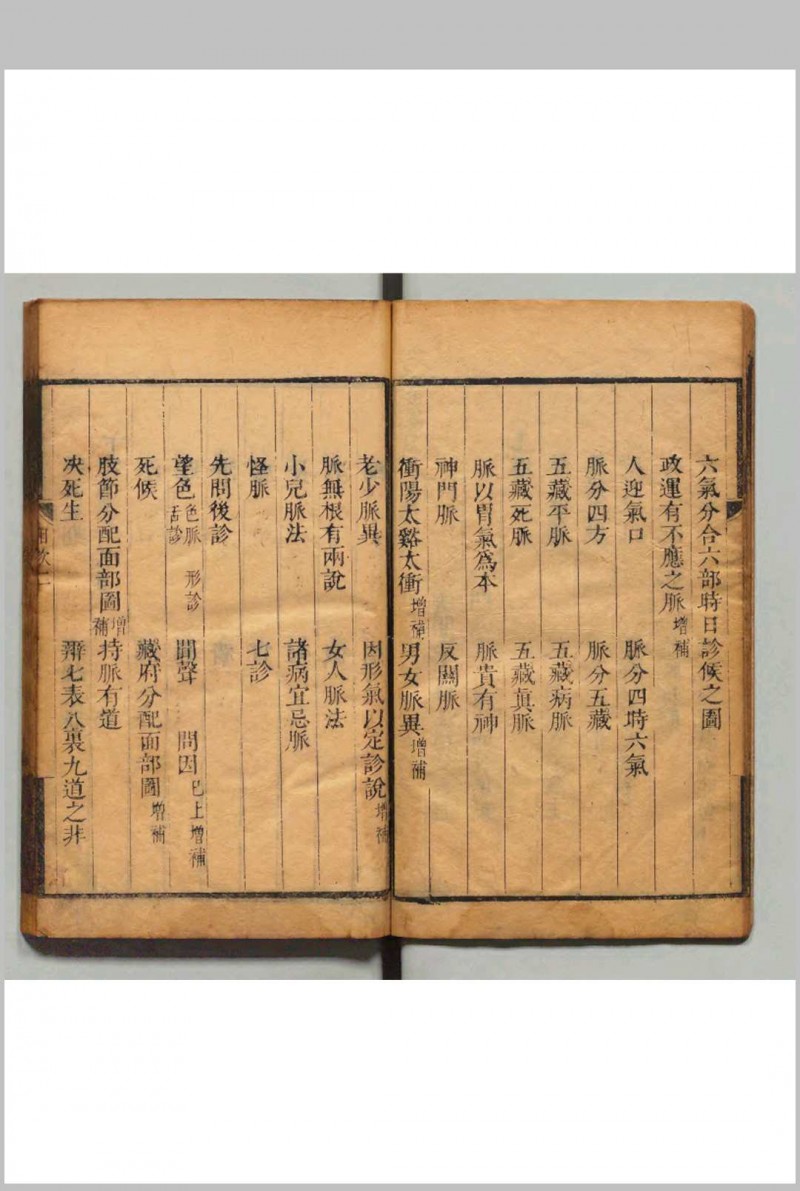 六氣分合六部時日診候之圖
政運有不應之脈增補
人迎氣口　脈分四時六氣
脈分四方　脈分五藏
五藏平脈　五藏病脈
五藏死脈　五藏眞脈
脈以胃氣爲本　脈貴有神
神門脈　反關脈
衝陽太谿太衝增補　男女脈異增補
老少脈異　因形氣以定診說增補
脈無根有兩說　女人脈法
小兒脈法　諸病宜忌脈
怪脈　七診
先問後診
望色色脈　形診　舌診　聞聲　問因已上增補
死候　藏府分配面部圖增補
肢節分配面部圖增補　持脈有道
决死生　辯七表八裏九道之非